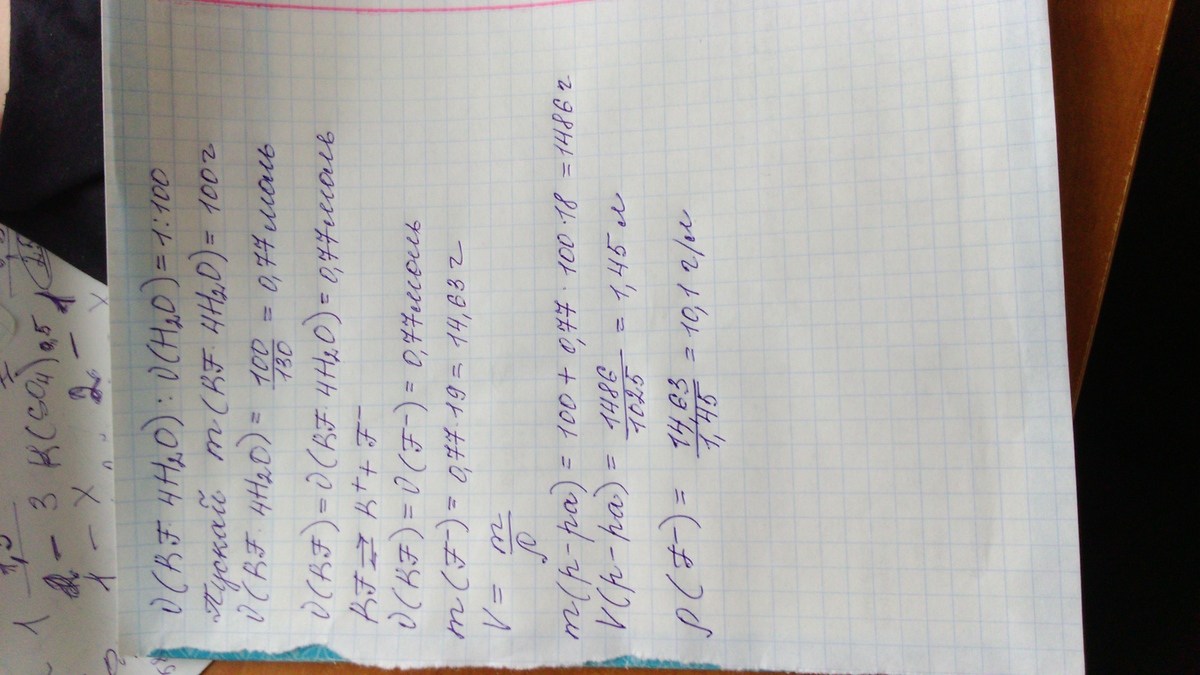 ν(KF·4H₂O) : ν(H₂O) = 1:100
Пускай m(KF·4H₂O) = 100г
ν(KF·4H₂O) = 100/130 = 0,77моль
ν(KF) = ν(KF·4H₂O) = 0,77моль
KF ⇄ K⁺ + F⁻
ν(KF) = ν(F⁻) = 0,77моль
m(F⁻) = 0,77·19 = 14,63г
V = m/ρ
m(р-ра) = 100 + 0,77·100·18 = 1486г
V(р-ра) = 1486/1025 = 1,45 л
ρ(F⁻) = 14,63/1,45 = 10,1 г/л